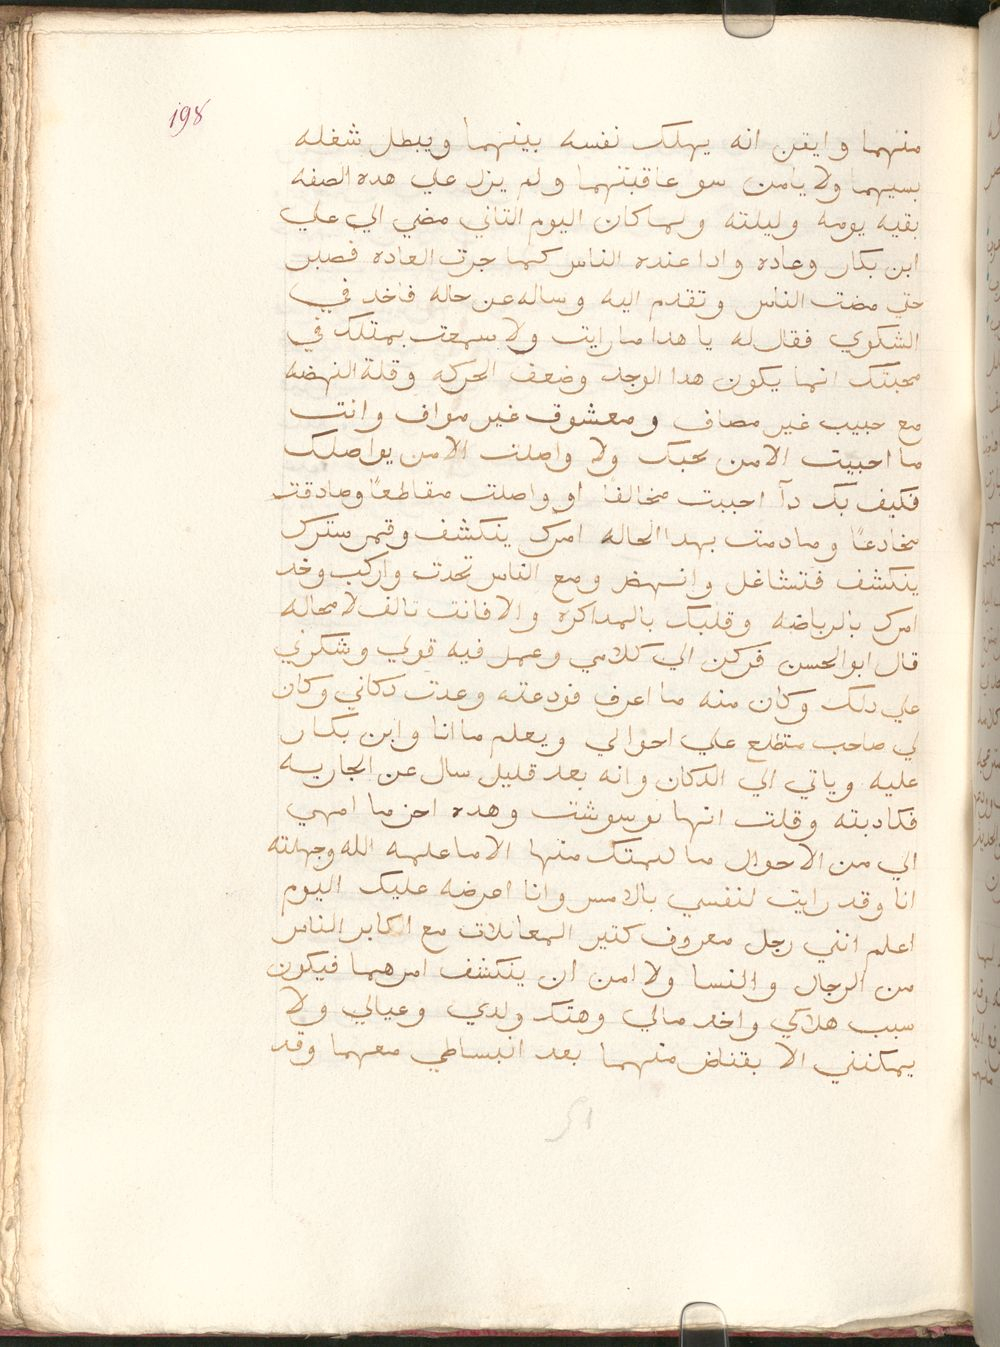 198
منهما وايقن انه يهلك نفسه بينهما ويبطل شغله
بسيهما ولا يامن سو عاقبتهما ولم يزل علي هده الصفه
بقيه يومه وليلته ولماكان اليوم التاني مضي الي علي
ابن بكار وعاده وادا عنده الناس كما جرت العاده فصبر
حتي مضت الناس وتقدم اليه وساله عن حاله فاخد في
الشكوي فقال له يا هدا ما رايت ولا سمعت بمتلك في
محبتك انما يكون هدا الوجد وضعف الحركه وقلة النهضه
مع حبيب غير مصاف ومعشوق غير مواف وانت
ما احببت الا من يحبك ولا واصلت الا من يواصلك
فكيف بك دآ احببت مخالفا او واصلت مقاطعًا وصادقت
مخادعًا ومادمت بهدا الحاله امرك ينكشف وقمر سترك
ينكشف فتشاغل وانهض ومع الناس تحدت واركب وخد
امرك بالرياضه وقلبك بالمداكره والا فانت تالف لا محاله
قال ابوالحسن فركن الي كلامي وعمل فيه قولي وشكرني
علي دلك وكان منه ما اعرف فودعته وعدت دكاني وكان
لي صاحب متطلع علي احوالي ويعلم ما انا وابن بكار
عليه وياتي الي الدكان وانه بعد قليل سال عن الجاريه
فكادبته وقلت انها وهده اخر ما انهي
الي من الاحوال ما منها الا ما علمه الله وجهلته
انا وقد رايت لنفسي بالامس وانا اعرضه عليك اليوم
اعلم انني رجل معروف كتير المعاملات مع اكابر الناس
من الرجال والنسا ولا امن ان ينكشف امرهما فيكون
سبب هلاكي واخد مالي وهتك ولدي وعيالي ولا
يمكنني الا بقناض منهما بعد انبساطي معهما وقد